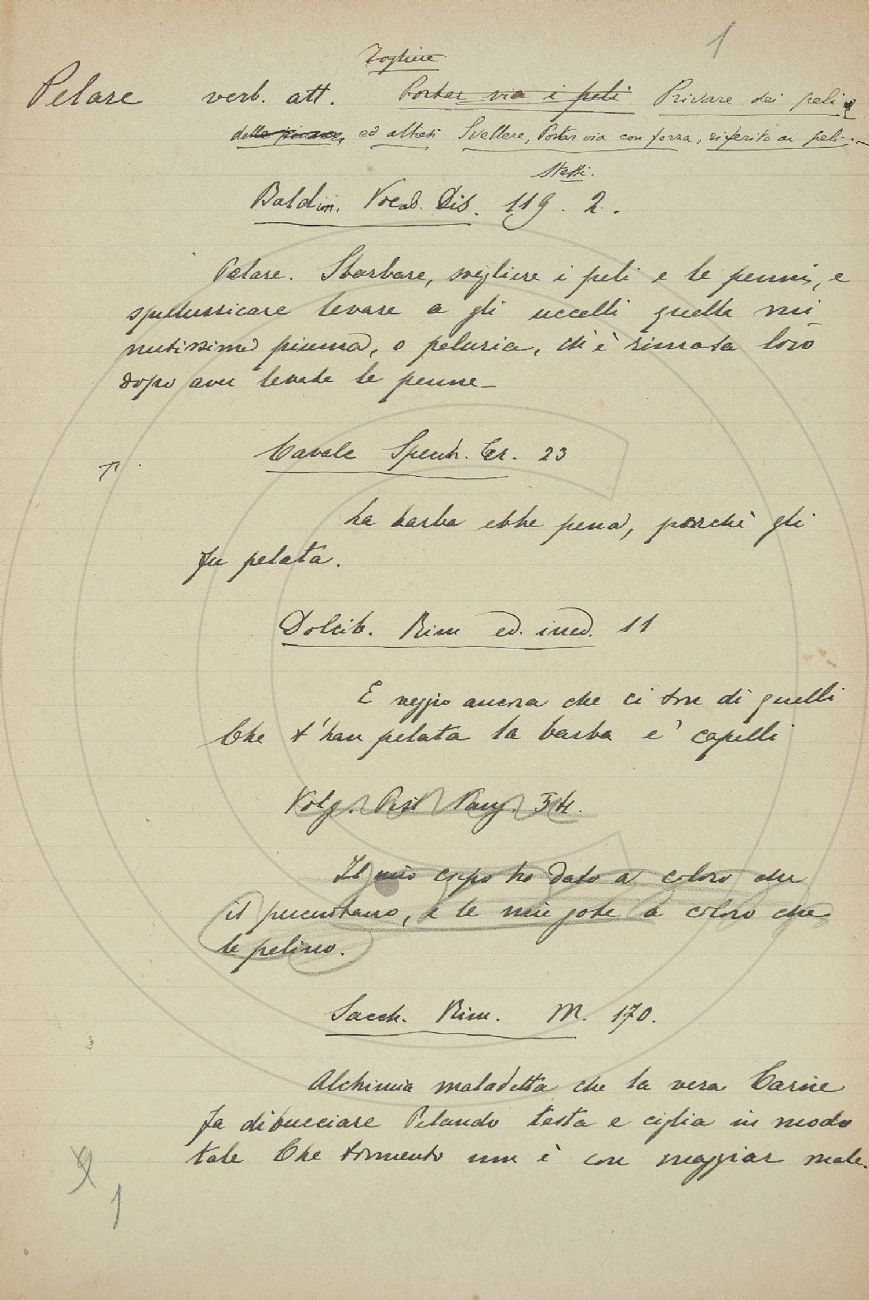 1
Togliere
Pelare verb. att. Portar via i peli Privare dei peli e
delle piume, ed altresì Svellere, Portar via con forza, riferito ai peli
stessi.
Baldin. Vocab. Dis. 119. 2.
Pelare. Sbarbare, svegliere i peli e le penne, e
spelluzzicare levare a gli uccelli quella mi
nutissima piuma, o peluria, ch'è rimasta loro
dopo aver levate le penne
Cavalc Specch. Cr. 23
La barba ebbe pena, perchè gli
fu pelata.
Dolcib. Rim ed. ined. 11
E veggio ancora che ci son di quelli
Che t'han pelata la barba e' capelli
Volg. Pist Pauy. 34.
Il mio corpo ho dato a coloro che
il percuotano, e le mie gote a coloro che
le pelino.
Sacch. Rim. M. 170.
Alchimia maladetta che la vera Carne
fa dibucciare Pelando testa e ciglia in modo
tale Che tormento non è con maggior male.
1